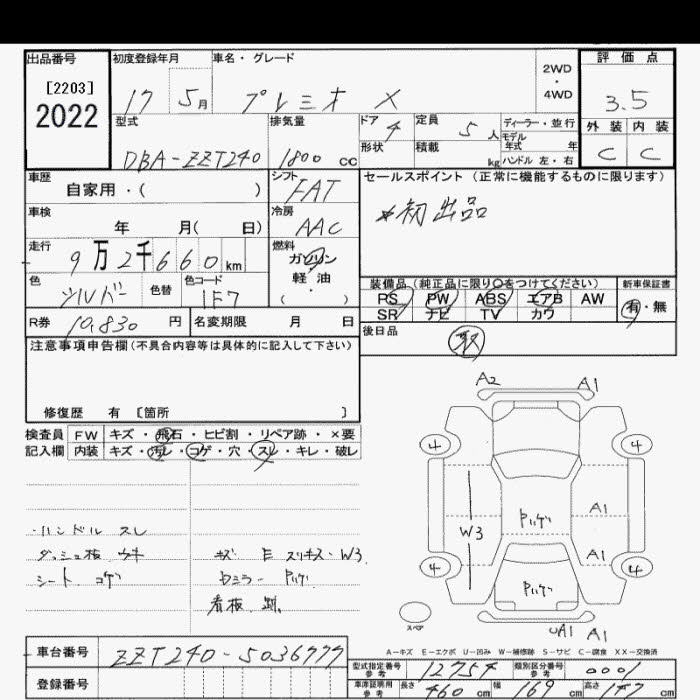 出品番号 初度登録年月 車名・グレード 2WD・4WD 評価点
[2203]
2022 17 5月 プレミオ X 3.5
型式 排気量 ドア 4 定員 5人 ディーラー・並行 外装 内装
DBA-ZZT240 1800cc 形状 積載 kg モデル年式 年 ハンドル 左・右 C C
車歴 自家用・( ) シフト FAT セールスポイント(正常に機能するものに限ります)
車検 年 月( 日) 冷房 AAC *初出品
走行 9万2千660km 燃料 ガソリン 軽油 ( ・ )
色 シルバー 色替 色コード 1F7 装備品(純正品に限り○をつけてください) 新車保証書
PS PW ABS エアB AW 有・無
R券 10,830円 名変期限 月 日 SR ナビ TV カワ
注意事項申告欄(不具合内容等は具体的に記入して下さい) 後日品 取
修復歴 有 [箇所 ]
検査員 FW キズ・飛石・ヒビ割・リペア跡・×要
記入欄 内装 キズ・汚レ・コゲ・穴・スレ・キレ・破レ
ハンドル スレ
ダッシュ板 キキズ E スリキズ・W3
シート コゲ
看板 跡
A2 A1
4 4
A1
W3
A1
4 4
スペア
UA1 A1
A-キズ E-エクボ U-凹み W-補修跡 S-サビ C-腐食 XX-交換済
車台番号 ZZT240-5036777 型式指定番号 参考 12754 類別区分番号 参考 0001
登録番号 車庫証明用 参考 長さ 460cm 幅 169cm 高さ 147cm